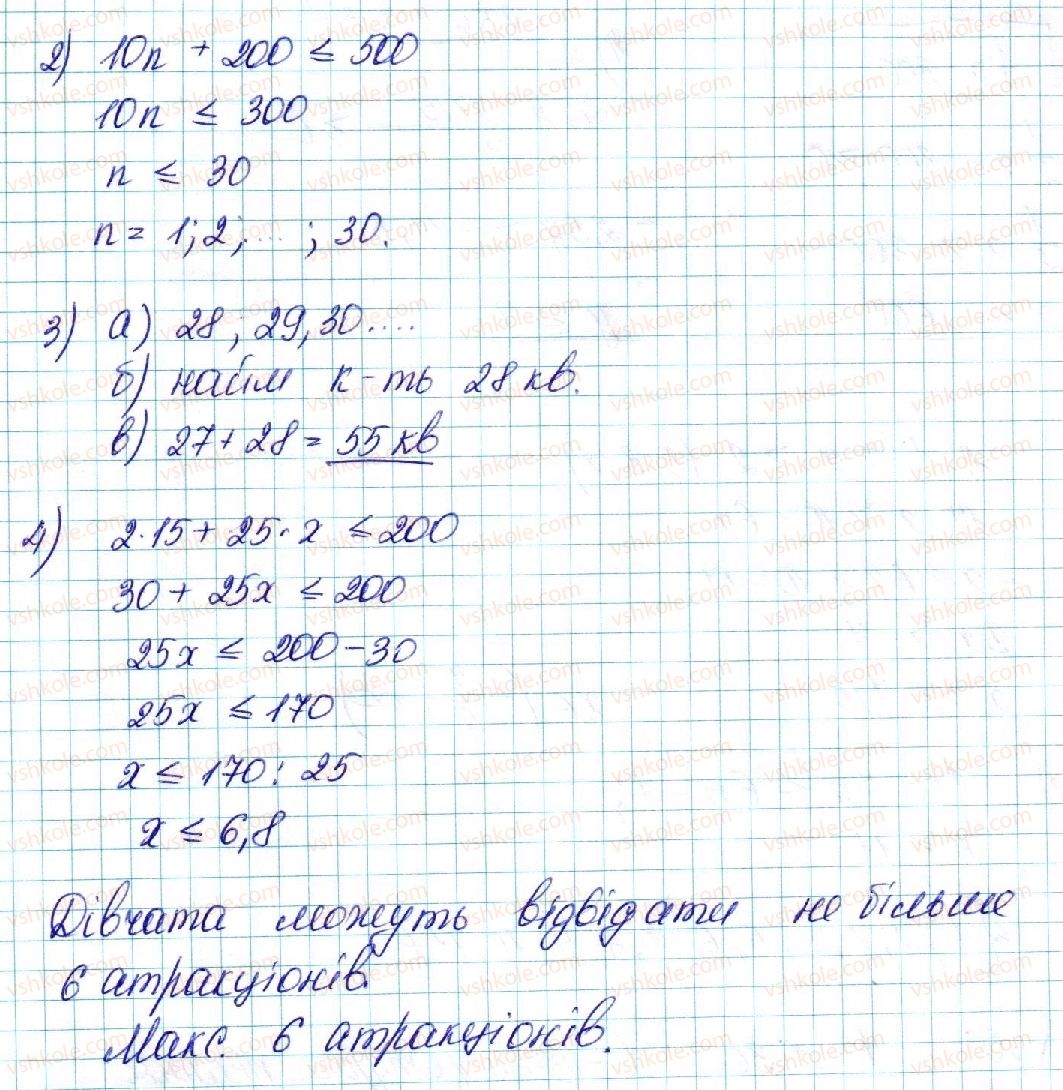 2) 10n + 200 ≤ 500
10n ≤ 300
n ≤ 30
n = 1; 2; ... ; 30.
3) а) 28; 29, 30....
б) найм к-ть 28 кв.
в) 27 + 28 = 55 кв
4) 2·15 + 25·x ≤ 200
30 + 25x ≤ 200
25x ≤ 200 - 30
25x ≤ 170
x ≤ 170 : 25
x ≤ 6,8
Дівчата можуть відвідати не більше
6 атракціонів.
Макс. 6 атракціонів.